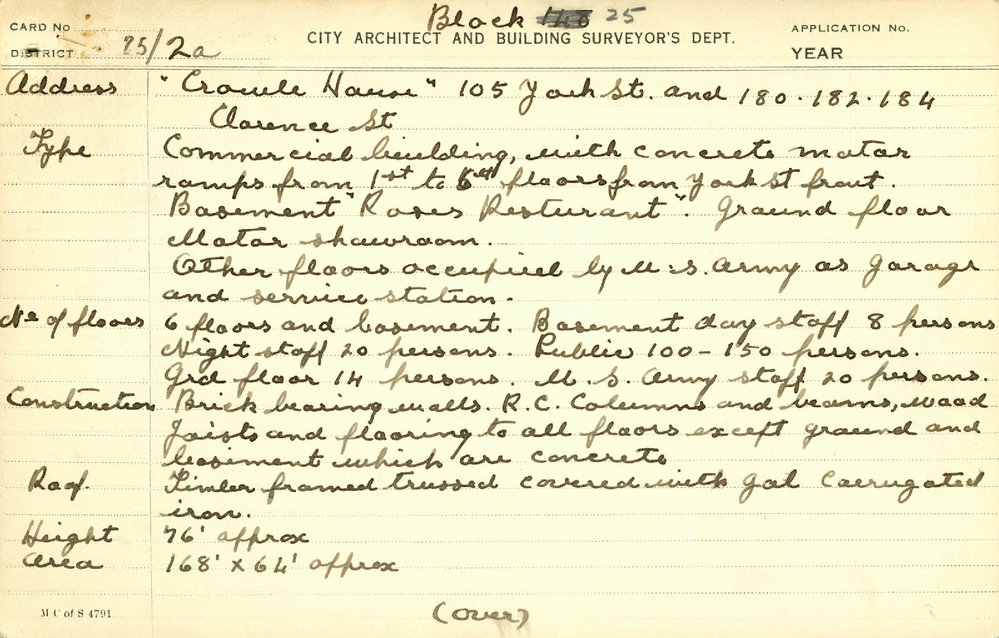 Block 148 25
CARD No
CITY ARCHITECT AND BUILDING SURVEYOR'S DEPT.
APPLICATION No.
DISTRICT 25/2a
YEAR
Address "Crowle House" 105 York St. and 180. 182. 184
Clarence St
Type Commercial building, with concrete motor
ramps from 1st to 6th floors from York St front.
Basement "Roses Resturant". Ground floor
Motor showroom.
Other floors occupied by U.S. Army as garage
and service station.
No of floors 6 floors and basement. Basement day staff 8 persons
Night staff 20 persons. Public 100-150 persons.
Grd floor 14 persons. U.S. Army staff 20 persons.
Construction Brick bearing walls. R.C. Columns and beams, wood
Joists and flooring to all floors except ground and
basement which are concrete
Roof. Timber framed trussed covered with gal Corrugated
iron.
Height 76' approx
Area 168' x 64' approx
M C of S 4791
(over)